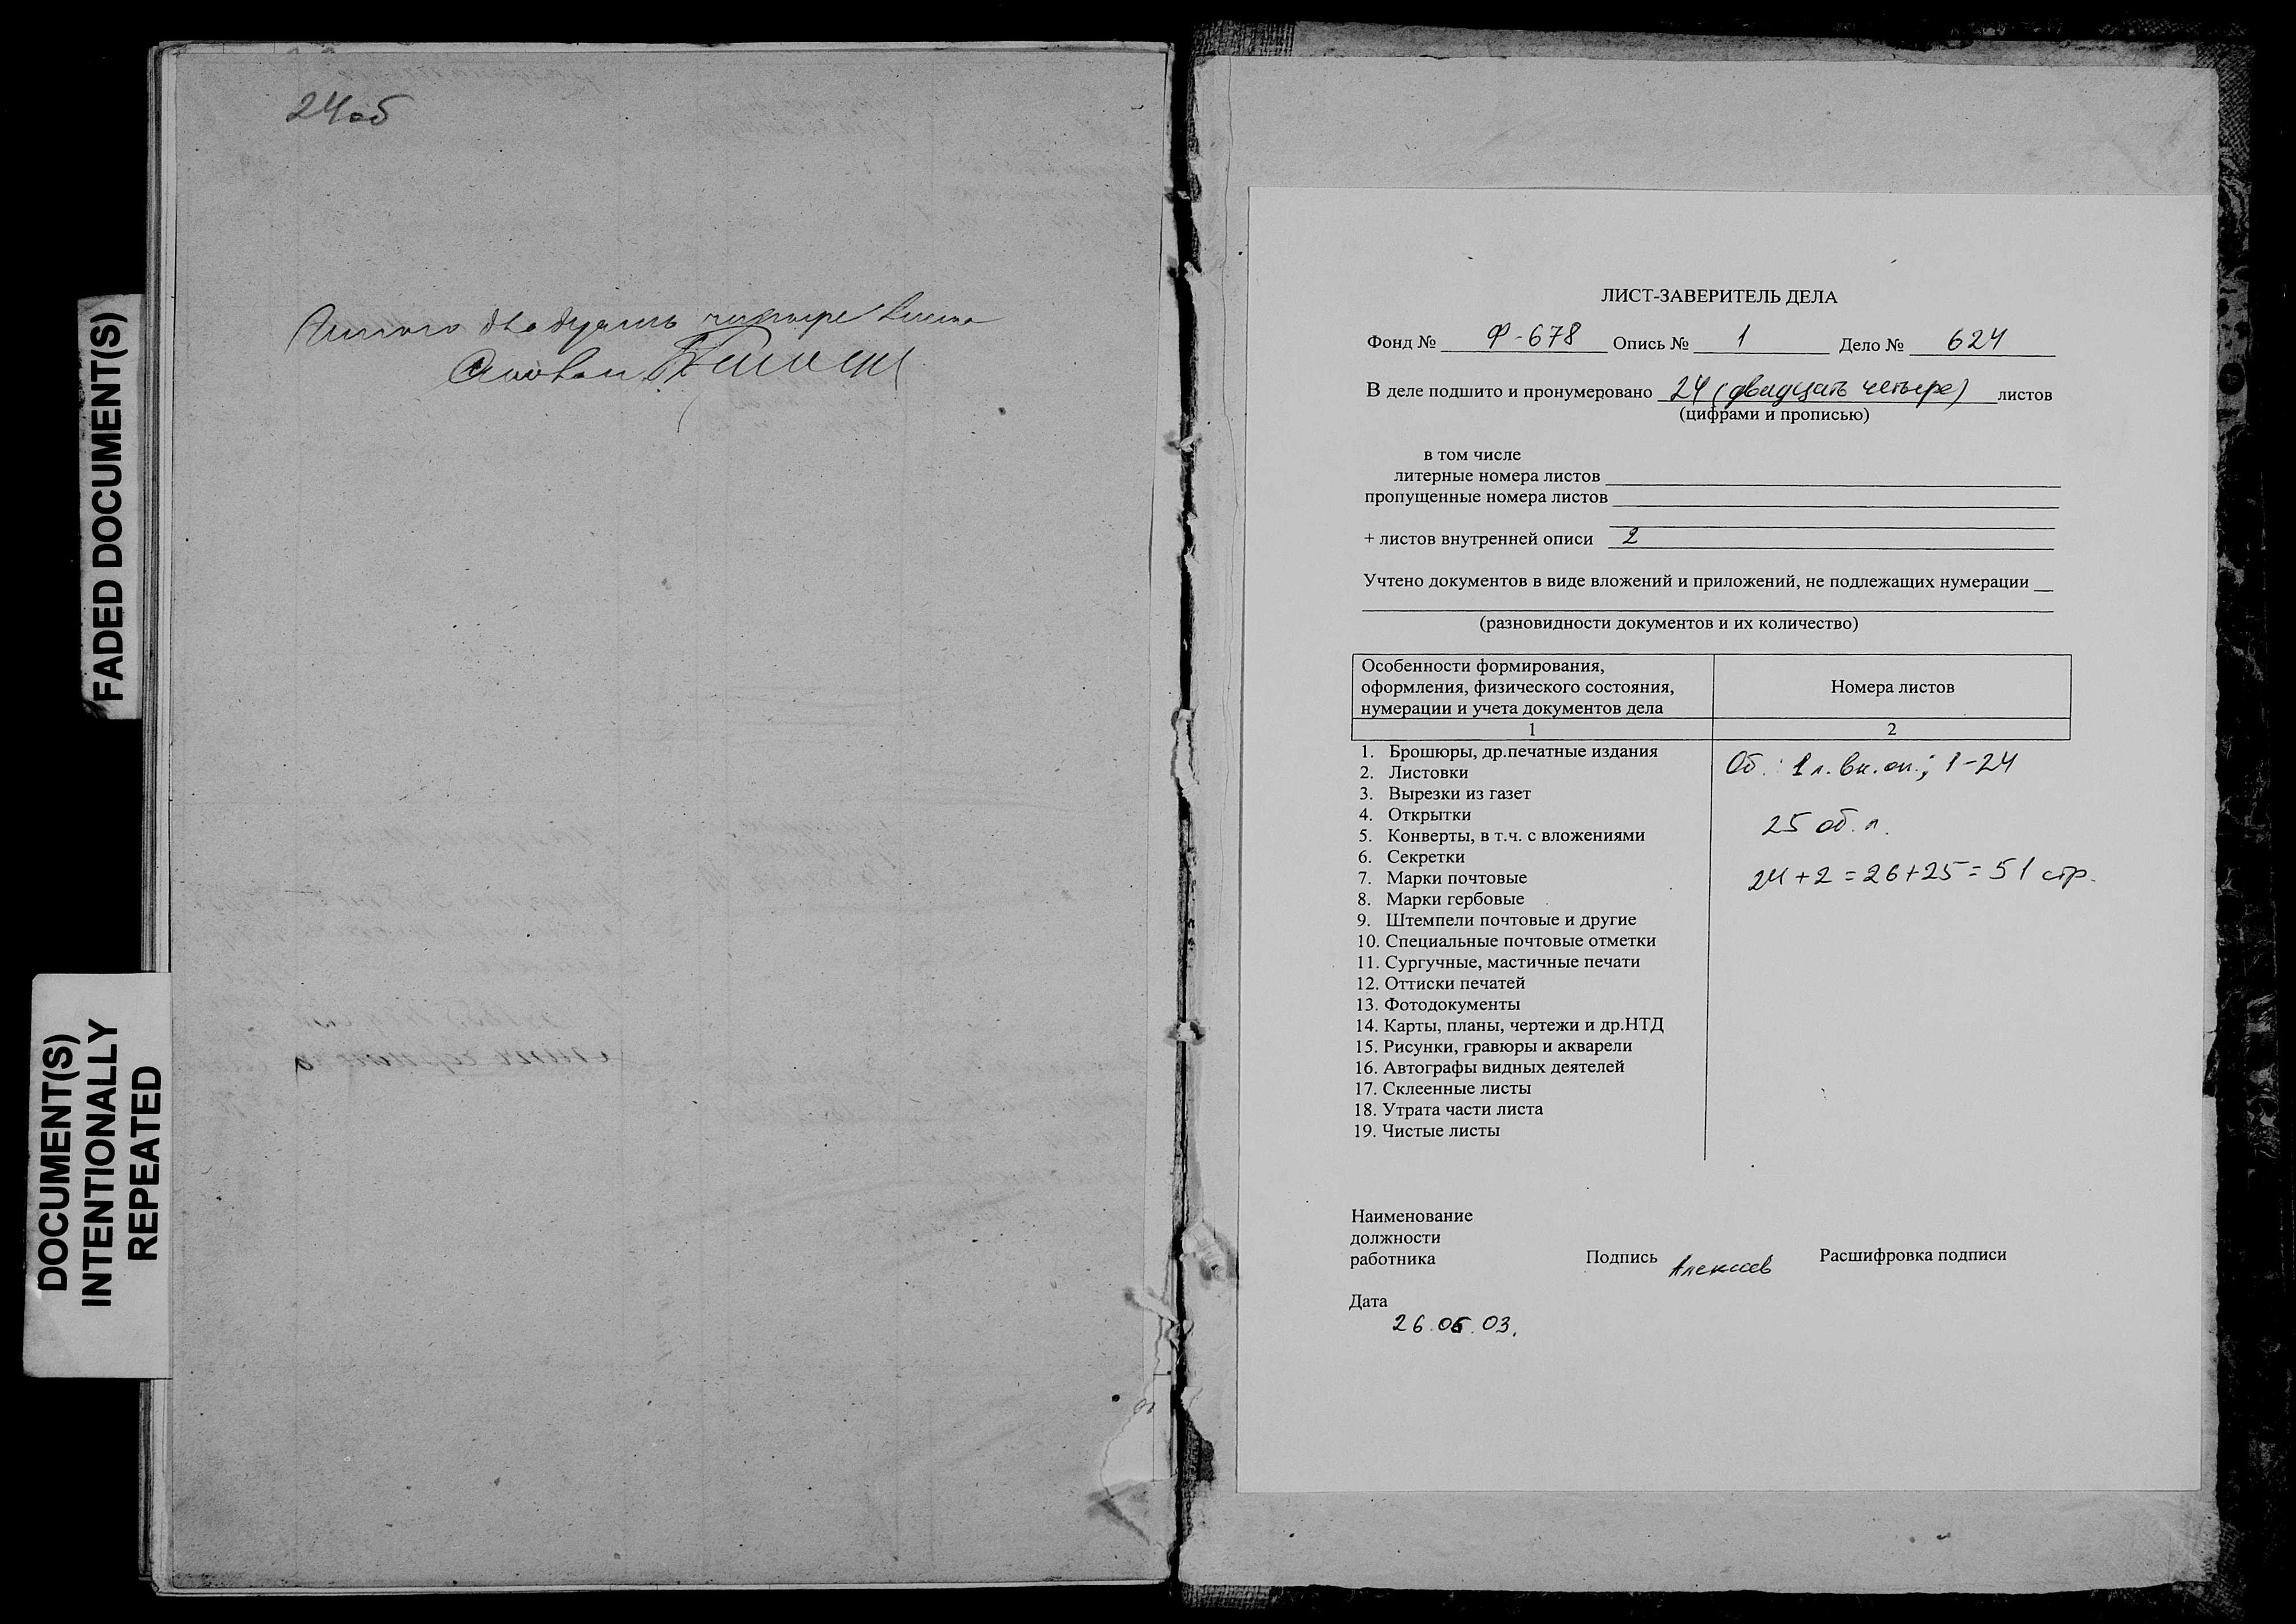 FADED DOCUMENT(S)
DOCUMENT(S)
INTENTIONALLY
REPEATED
24об
двадцать четыре
ЛИСТ-ЗАВЕРИТЕЛЬ ДЕЛА
Фонд № Ф-678 Опись № 1 Дело № 624
В деле подшито и пронумеровано 24 (двадцать четыре) листов
(цифрами и прописью)
в том числе
литерные номера листов
пропущенные номера листов
+ листов внутренней описи 2
Учтено документов в виде вложений и приложений, не подлежащих нумерации
(разновидности документов и их количество)
Особенности формирования,
оформления, физического состояния,
нумерации и учета документов дела
Номера листов
1 2
1. Брошюры, др.печатные издания
2. Листовки
3. Вырезки из газет
4. Открытки
5. Конверты, в т.ч. с вложениями
6. Секретки
7. Марки почтовые
8. Марки гербовые
9. Штемпели почтовые и другие
10. Специальные почтовые отметки
11. Сургучные, мастичные печати
12. Оттиски печатей
13. Фотодокументы
14. Карты, планы, чертежи и др.НТД
15. Рисунки, гравюры и акварели
16. Автографы видных деятелей
17. Склеенные листы
18. Утрата части листа
19. Чистые листы
Об.: 1 л. вн. оп.; 1-24
25 об. л.
24+2=26+25=51 стр.
Наименование
должности
работника
Подпись Алексеев Расшифровка подписи
Дата
26.05.03.